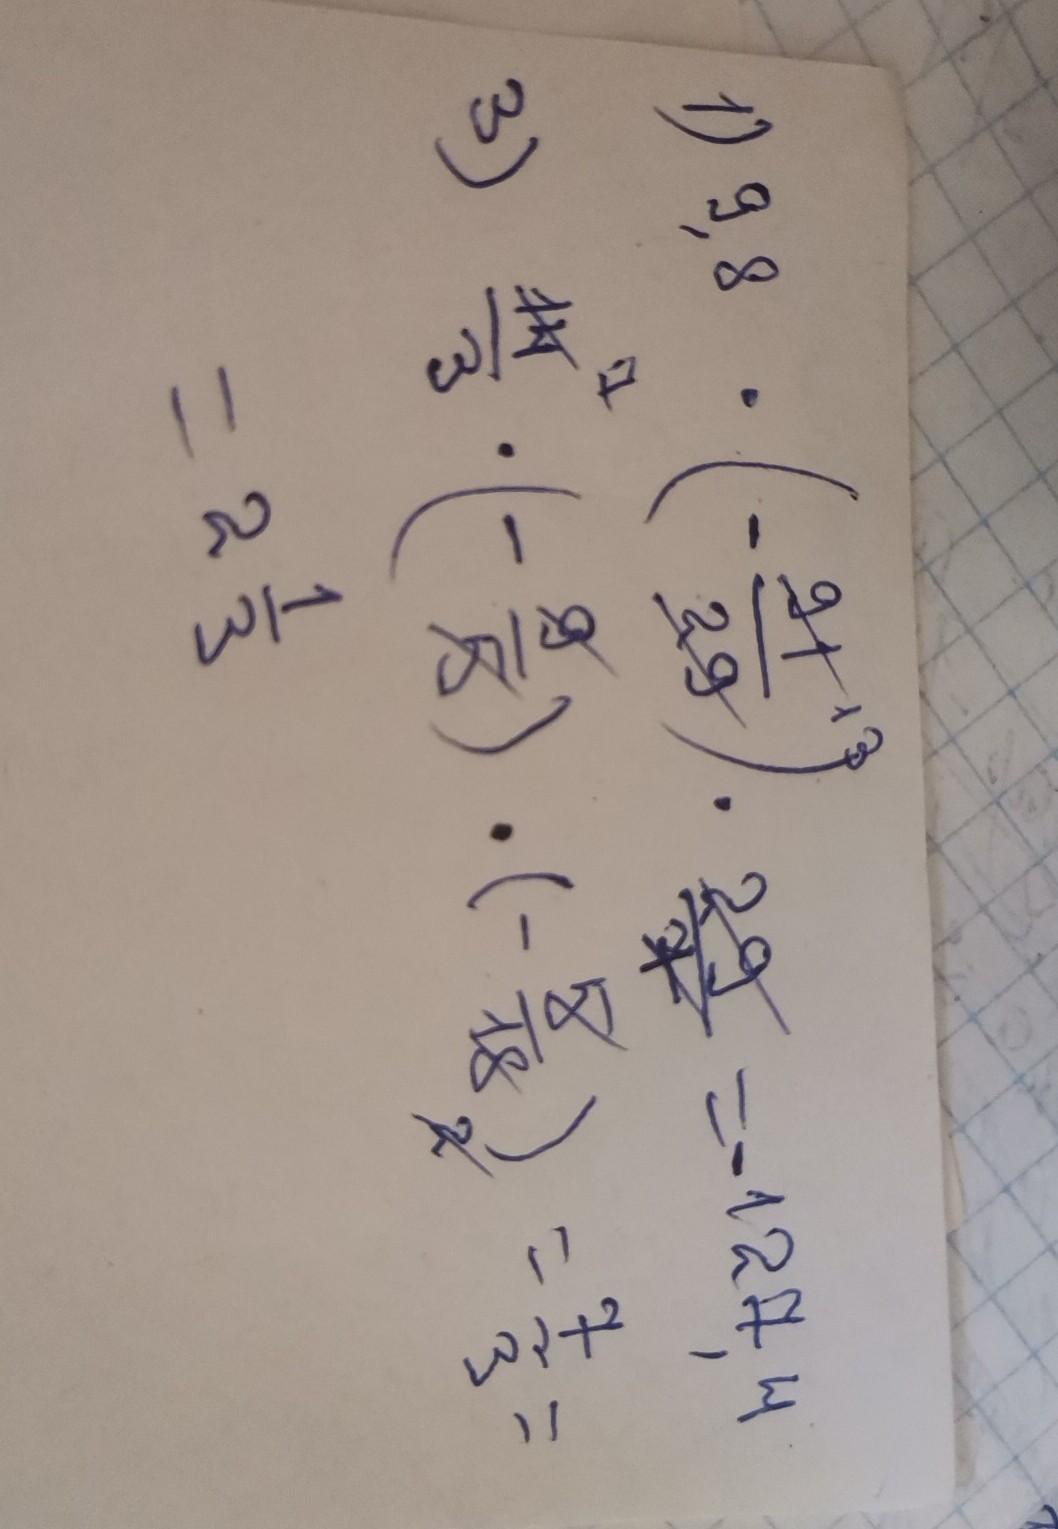 1) 9,8 · (- 91/29 13) · 29/7 = -127,4
3) 14/3 7 · (- 9/5) · (- 5/18 2) = 7/3 =
= 2 1/3